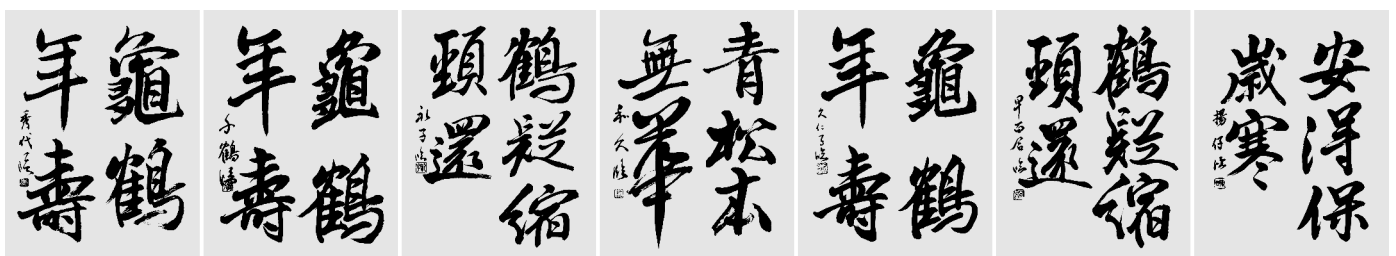 龜鶴
年壽
秀代臨
龜鶴
年壽
千鶴臨
鶴疑縮
頸還
青松本
無華
和久臨
龜鶴
年壽
久仁子臨
鶴疑縮
頸還
安得保
歲寒